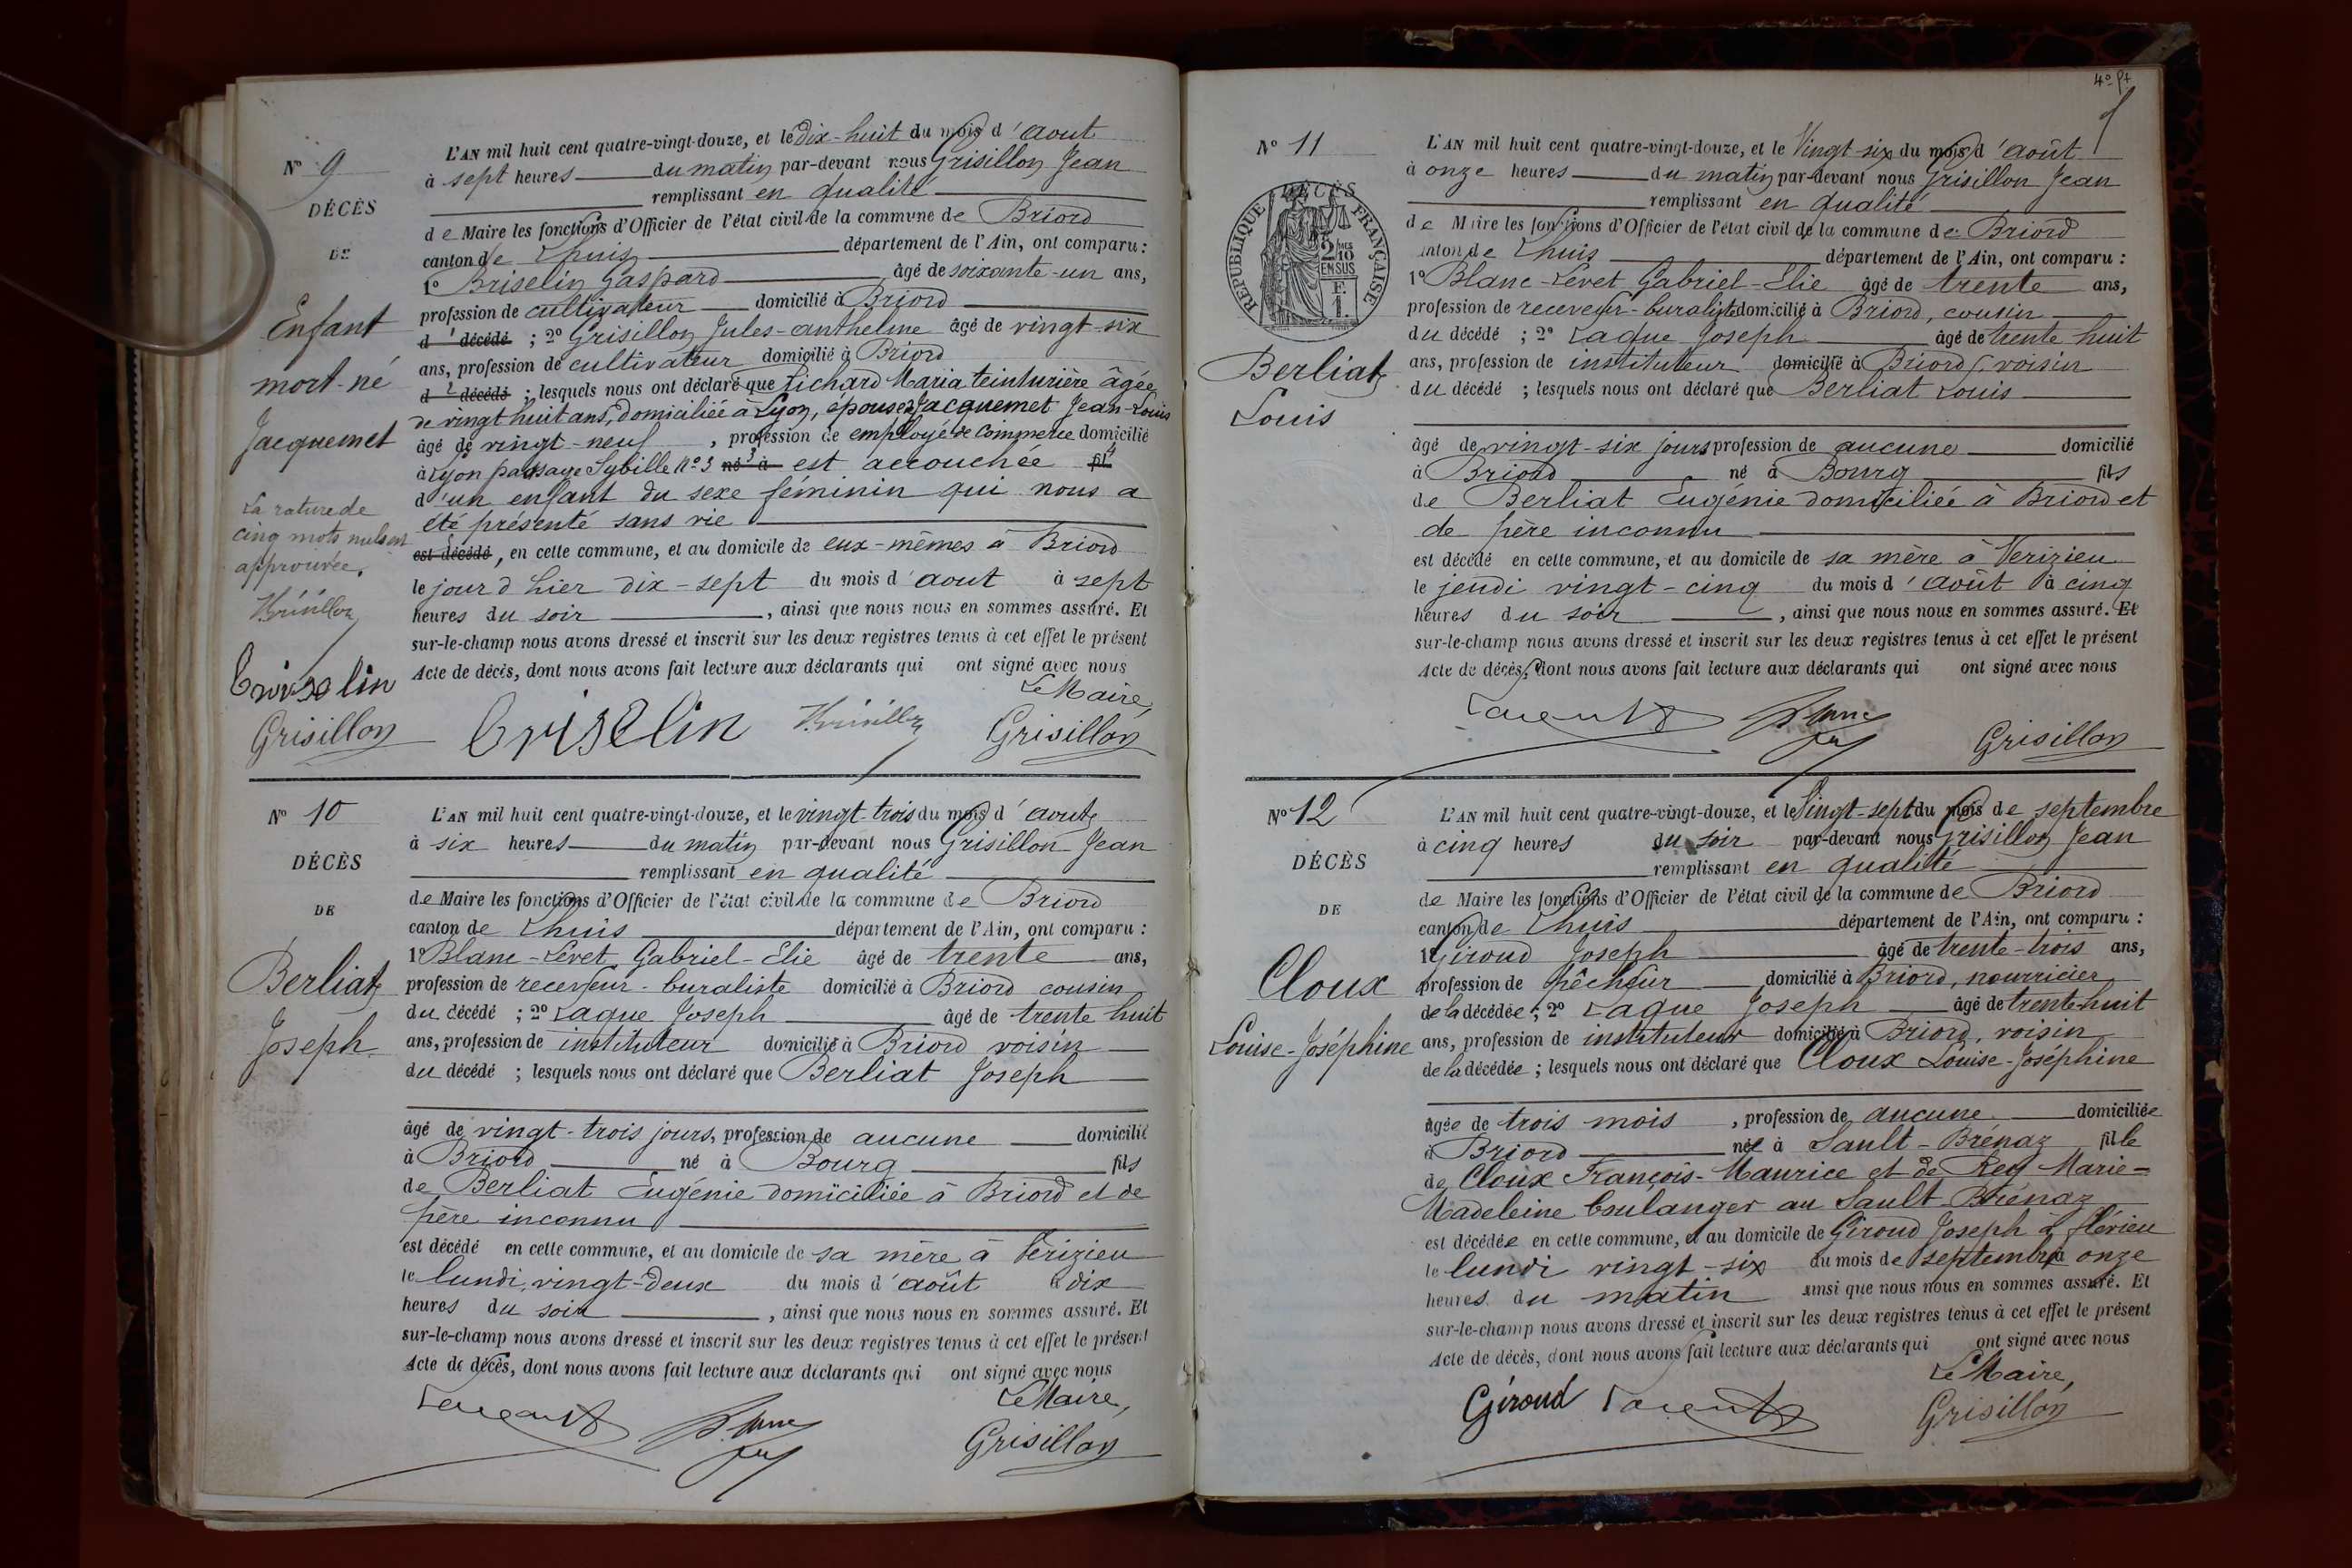 N° 9
DÉCÈS
DE
Enfant
mort-né
Jacquemet
La rature de
cinq mots nuls est
approuvée.
Griselin
Grisillon
L'AN mil huit cent quatre-vingt-douze, et le dix-huit du mois d'aout
à sept heures du matin par-devant nous Grisillon Jean
remplissant en qualité
de Maire les fonctions d'Officier de l'état civil de la commune de Briord
canton de Lhuis département de l'Ain, ont comparu :
1° Briselin Gaspard âgé de soixante-un ans,
profession de cultivateur domicilié à Briord
d 1 décédé ; 2° Grisillon Jules-anthelme âgé de vingt-six
ans, profession de cultivateur domicilié à Briord
d 2 décédé ; lesquels nous ont déclaré que Richard Maria teinturière âgée
de vingt huit ans, domiciliée à Lyon, épouse Jacquemet Jean-Louis
âgé de vingt-neuf , profession de employé de Commerce domicilié
à Lyon passage Sybille N° 3 né 3 à est accouchée fil 4
d'un enfant du sexe féminin qui nous a
été présenté sans vie
est décédé, en cette commune, et au domicile de eux-mêmes à Briord
le jour d'hier dix-sept du mois d'aout à sept
heures du soir , ainsi que nous nous en sommes assuré. Et
sur-le-champ nous avons dressé et inscrit sur les deux registres tenus à cet effet le présent
Acte de décès, dont nous avons fait lecture aux déclarants qui ont signé avec nous
Le Maire,
Griselin
Grisillon
N° 10
DÉCÈS
DE
Berliat
Joseph
L'AN mil huit cent quatre-vingt-douze, et le vingt-trois du mois d'aout
à six heures du matin par-devant nous Grisillon Jean
remplissant en qualité
de Maire les fonctions d'Officier de l'état civil de la commune de Briord
canton de Lhuis département de l'Ain, ont comparu :
1° Blanc-Levet Gabriel-Elie âgé de trente ans,
profession de receveur-buraliste domicilié à Briord cousin
du décédé ; 2° Laque Joseph âgé de trente huit
ans, profession de instituteur domicilié à Briord voisin
du décédé ; lesquels nous ont déclaré que Berliat Joseph
âgé de vingt-trois jours, profession de aucune domicilié
à Briord né à Bourg fils
de Berliat Eugénie domiciliée à Briord et de
père inconnu
est décédé en cette commune, et au domicile de sa mère à Verizieu
le lundi vingt-deux du mois d'août à dix
heures du soir , ainsi que nous nous en sommes assuré. Et
sur-le-champ nous avons dressé et inscrit sur les deux registres tenus à cet effet le présent
Acte de décès, dont nous avons fait lecture aux déclarants qui ont signé avec nous
Le Maire,
Grisillon
4e ft
N° 11
RÉPUBLIQUE FRANÇAISE
DÉCÈS
2/10 EN SUS
Berliat
Louis
L'AN mil huit cent quatre-vingt-douze, et le Vingt-six du mois d'août
à onze heures du matin par-devant nous Grisillon Jean
remplissant en qualité
de Maire les fonctions d'Officier de l'état civil de la commune de Briord
canton de Lhuis département de l'Ain, ont comparu :
1° Blanc-Levet Gabriel-Elie âgé de trente ans,
profession de receveur-buraliste domicilié à Briord, cousin
du décédé ; 2° Laque Joseph âgé de trente huit
ans, profession de instituteur domicilié à Briord, voisin
du décédé ; lesquels nous ont déclaré que Berliat Louis
âgé de vingt-six jours profession de aucune domicilié
à Briord né à Bourg fils
de Berliat Eugénie domiciliée à Briord et
de père inconnu
est décédé en cette commune, et au domicile de sa mère à Verizieu
le jeudi vingt-cinq du mois d'août à cinq
heures du soir , ainsi que nous nous en sommes assuré. Et
sur-le-champ nous avons dressé et inscrit sur les deux registres tenus à cet effet le présent
Acte de décès, dont nous avons fait lecture aux déclarants qui ont signé avec nous
Grisillon
N° 12
DÉCÈS
DE
Cloux
Louise-Joséphine
L'AN mil huit cent quatre-vingt-douze, et le Vingt-sept du mois de septembre
à cinq heures du soir par-devant nous Grisillon Jean
remplissant en qualité
de Maire les fonctions d'Officier de l'état civil de la commune de Briord
canton de Lhuis département de l'Ain, ont comparu :
1° Giroud Joseph âgé de trente-trois ans,
profession de pêcheur domicilié à Briord, nourricier
de la décédée ; 2° Laque Joseph âgé de trente-huit
ans, profession de instituteur domicilié à Briord, voisin
de la décédée ; lesquels nous ont déclaré que Cloux Louise-Joséphine
âgée de trois mois , profession de aucune domiciliée
à Briord née à Sault-Brénaz fille
de Cloux François-Maurice et de Rey Marie-
Madeleine boulanger au Sault-Brénaz
est décédée en cette commune, et au domicile de Giroud Joseph à flérieu
le lundi vingt-six du mois de septembre à onze
heures du matin ainsi que nous nous en sommes assuré. Et
sur-le-champ nous avons dressé et inscrit sur les deux registres tenus à cet effet le présent
Acte de décès, dont nous avons fait lecture aux déclarants qui ont signé avec nous
Le Maire,
Giroud
Grisillon